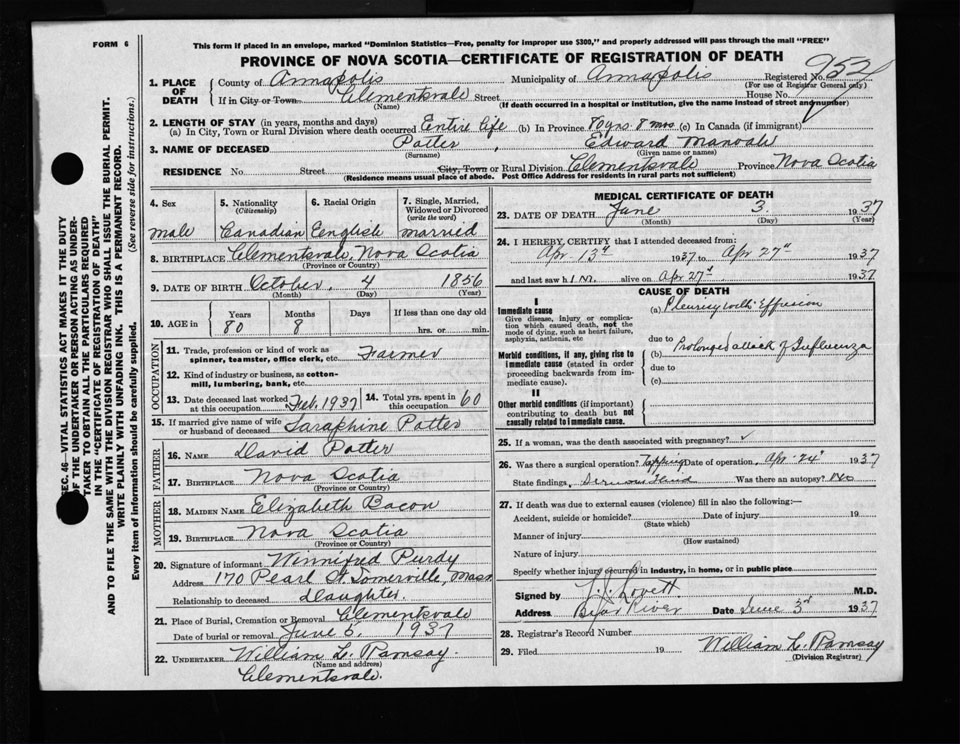 FORM 6
This form if placed in an envelope, marked "Dominion Statistics—Free, penalty for improper use $300," and properly addressed will pass through the mail "FREE"
PROVINCE OF NOVA SCOTIA—CERTIFICATE OF REGISTRATION OF DEATH
1. PLACE OF DEATH County of Annapolis Municipality of Annapolis Registered No. 957
(For use of Registrar General only)
If in City or Town Clementsvale Street House No.
(Name) (If death occurred in a hospital or institution, give the name instead of street and number)
2. LENGTH OF STAY (in years, months and days)
(a) In City, Town or Rural Division where death occurred Entire life (b) In Province 80 yrs 8 mos (c) In Canada (if immigrant)
3. NAME OF DECEASED Potter, Edward Manvale
(Surname) (Given name or names)
RESIDENCE No. Street City, Town or Rural Division Clementsvale Province Nova Scotia
(Residence means usual place of abode. Post Office Address for residents in rural parts not sufficient)
4. Sex 5. Nationality (Citizenship) 6. Racial Origin 7. Single, Married, Widowed or Divorced (write the word)
male Canadian English married
8. BIRTHPLACE Clementsvale, Nova Scotia
(Province or Country)
9. DATE OF BIRTH October, 4 1856
(Month) (Day) (Year)
10. AGE in Years Months Days If less than one day old
80 8 hrs. or min.
OCCUPATION
11. Trade, profession or kind of work as spinner, teamster, office clerk, etc. Farmer
12. Kind of industry or business, as cotton-mill, lumbering, bank, etc.
13. Date deceased last worked at this occupation Feb. 1937 14. Total yrs. spent in this occupation 60
15. If married give name of wife or husband of deceased Saraphine Potter
FATHER
16. NAME David Potter
17. BIRTHPLACE Nova Scotia
(Province or Country)
MOTHER
18. MAIDEN NAME Elizabeth Bacon
19. BIRTHPLACE Nova Scotia
(Province or Country)
20. Signature of informant Winnifred Purdy
Address 170 Pearl St. Somerville, Mass
Relationship to deceased daughter
21. Place of Burial, Cremation or Removal Clementsvale
Date of burial or removal June 5, 1937
22. UNDERTAKER William L. Ramsay.
(Name and address)
Clementsvale.
MEDICAL CERTIFICATE OF DEATH
23. DATE OF DEATH June 3. 1937
(Month) (Day) (Year)
24. I HEREBY CERTIFY that I attended deceased from:
Apr. 13th 1937 to Apr 27th 1937
and last saw him alive on Apr 27th 1937
CAUSE OF DEATH
I
Immediate cause
Give disease, injury or complication which caused death, not the mode of dying, such as heart failure, asphyxia, asthenia, etc
(a) Pleurisy with Effusion
due to
Morbid conditions, if any, giving rise to immediate cause (stated in order proceeding backwards from immediate cause).
(b) Prolonged attack of Influenza
due to
(c)
II
Other morbid conditions (if important) contributing to death but not causally related to immediate cause.
25. If a woman, was the death associated with pregnancy?
26. Was there a surgical operation? Tapping Date of operation, Apr-24 1937
State findings, Serous fluid Was there an autopsy? No
27. If death was due to external causes (violence) fill in also the following:—
Accident, suicide or homicide? Date of injury 19
(State which)
Manner of injury
(How sustained)
Nature of injury
Specify whether injury occurred in industry, in home, or in public place
Signed by L. J. Lovett M.D.
Address Bear River Date June 3rd 1937
28. Registrar's Record Number
29. Filed 19 William L. Ramsay
(Division Registrar)
SEC. 46—VITAL STATISTICS ACT MAKES IT THE DUTY
OF THE UNDERTAKER OR PERSON ACTING AS UNDER-
TAKER TO OBTAIN ALL THE PARTICULARS REQUIRED
IN THE "CERTIFICATE OF REGISTRATION OF DEATH"
AND TO FILE THE SAME WITH THE DIVISION REGISTRAR WHO SHALL ISSUE THE BURIAL PERMIT.
WRITE PLAINLY WITH UNFADING INK. THIS IS A PERMANENT RECORD.
Every item of information should be carefully supplied. (See reverse side for instructions.)